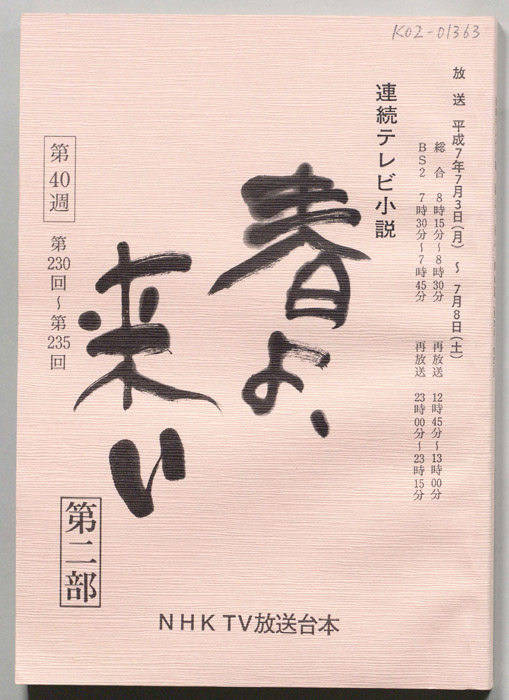 K02-01363
放送 平成7年7月3日(月) ～ 7月8日(土)
総合 8時15分～8時30分 再放送 12時45分～13時00分
BS2 7時30分～7時45分 再放送 23時00分～23時15分
連続テレビ小説
春よ、
来い
第40週
第230回～第235回
第二部
NHK TV放送台本